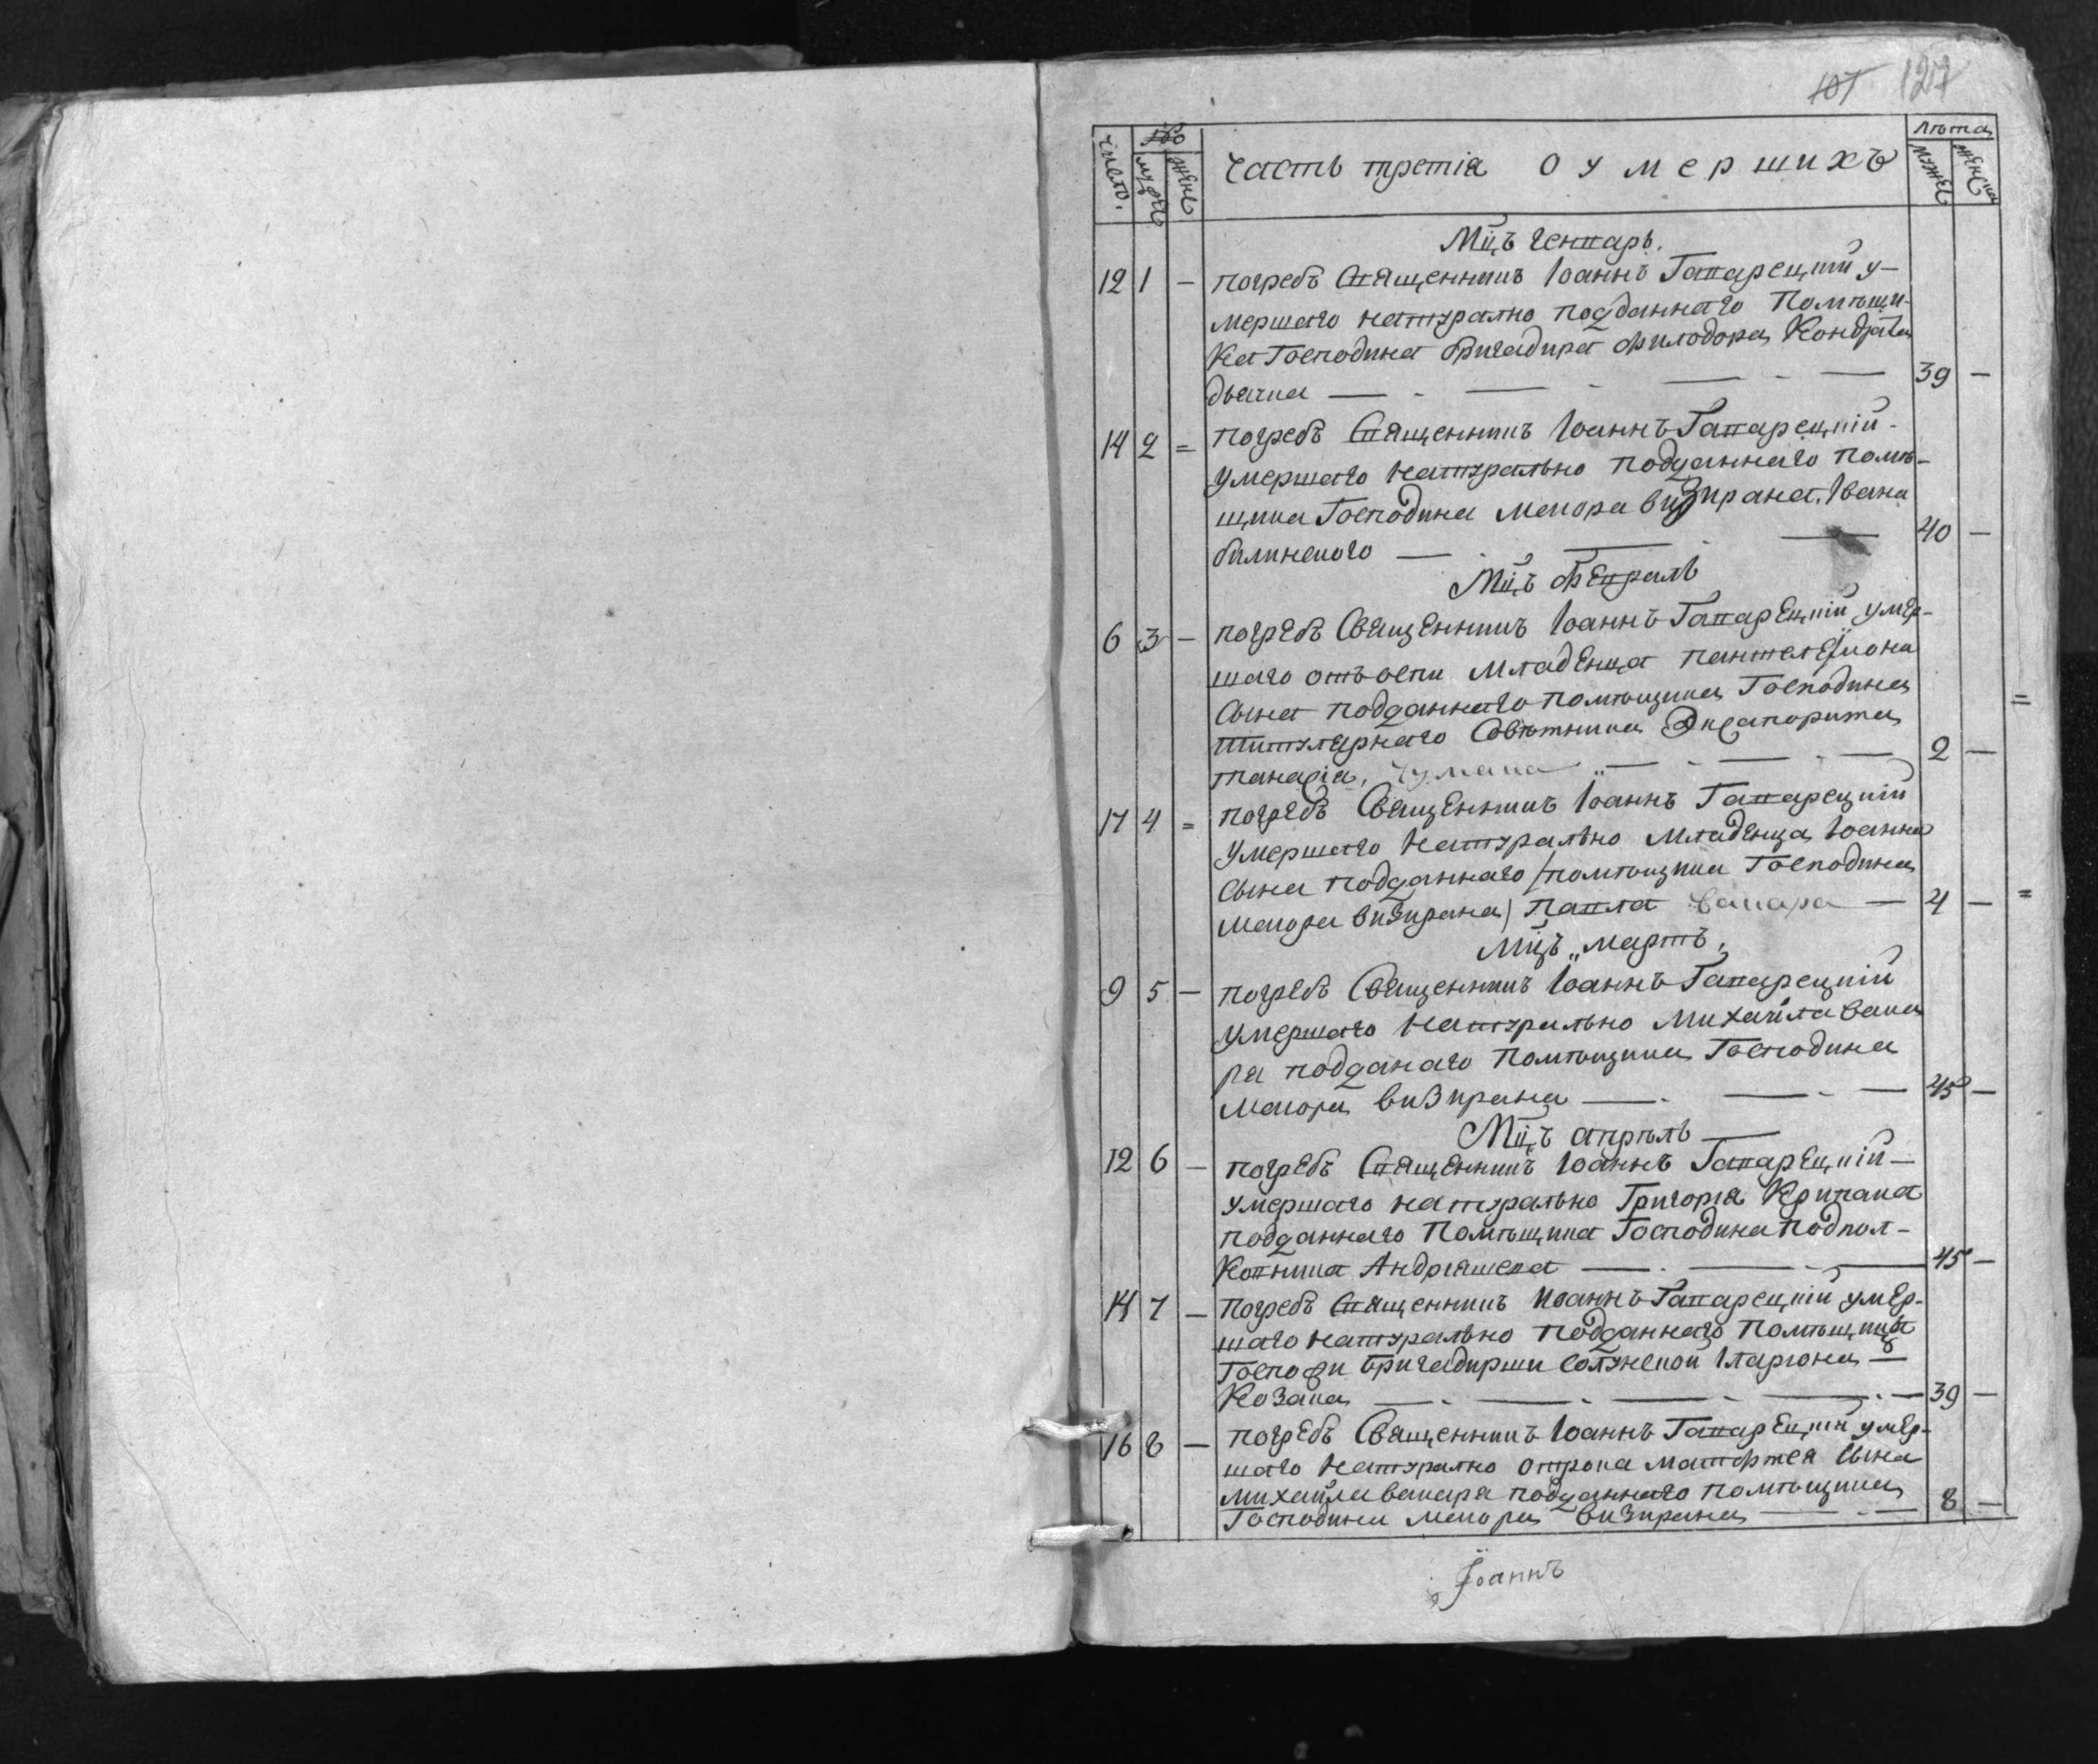 107 127
число. мужеск женс Часть третіа О умершихъ лѣта мужеск женска
Мцъ Генварь.
12 1 — погребъ Священникъ Іоаннъ Гапарецкій у-
мершаго натурално подданнаго Помѣщи-
ка Господина Бригадира Филодора Кондрата
дячка — 39 —
14 2 = погребъ Священникъ Іоаннъ Гапарецкій
умершаго натурально подданнаго помѣ-
щика Господина Маиора Визирана Івана
билинского — 40 —
Мцъ Февраль
6 3 — погребъ Священникъ Іоаннъ Гапарецкій умер-
шаго отъ оспи младенца пантелеимона
сына подданнаго помѣщика Господина
титулярнаго Совѣтника Эксапорита
танасіа, чумака — 2 —
17 4 = погребъ Священникъ Іоаннъ Гапарецкій
умершаго натурально младенца Іоанна
сына подданнаго /помѣщика Господина
маиора визирана/ павла вакара — 4 —
Мцъ „мартъ,
9 5 — погребъ Священникъ Іоаннъ Гапарецкій
умершаго натурально Михаила вака
ра подданаго помѣщика Господина
Маиора визирана — 45 —
Мцъ апрѣль —
12 6 — погребъ Священникъ Іоаннъ Гапарецкій —
умершаго натурально Григорія Крипака
подданнаго Помѣщика Господина подпол-
ковника Андріяшева — 45 —
14 7 — погребъ Священникъ Иоаннъ Гапарецкій умер-
шаго натурально подданнаго помѣщика
Госпожи бригадирши Іларіона —
Козака — 39 —
16 8 — погребъ Священникъ Іоаннъ Гапарецкій умер-
шаго натурално отрока матфтея сына
михаила вакара подданнаго помѣщика
Господина маиора визирана — 8 —
Іоаннъ